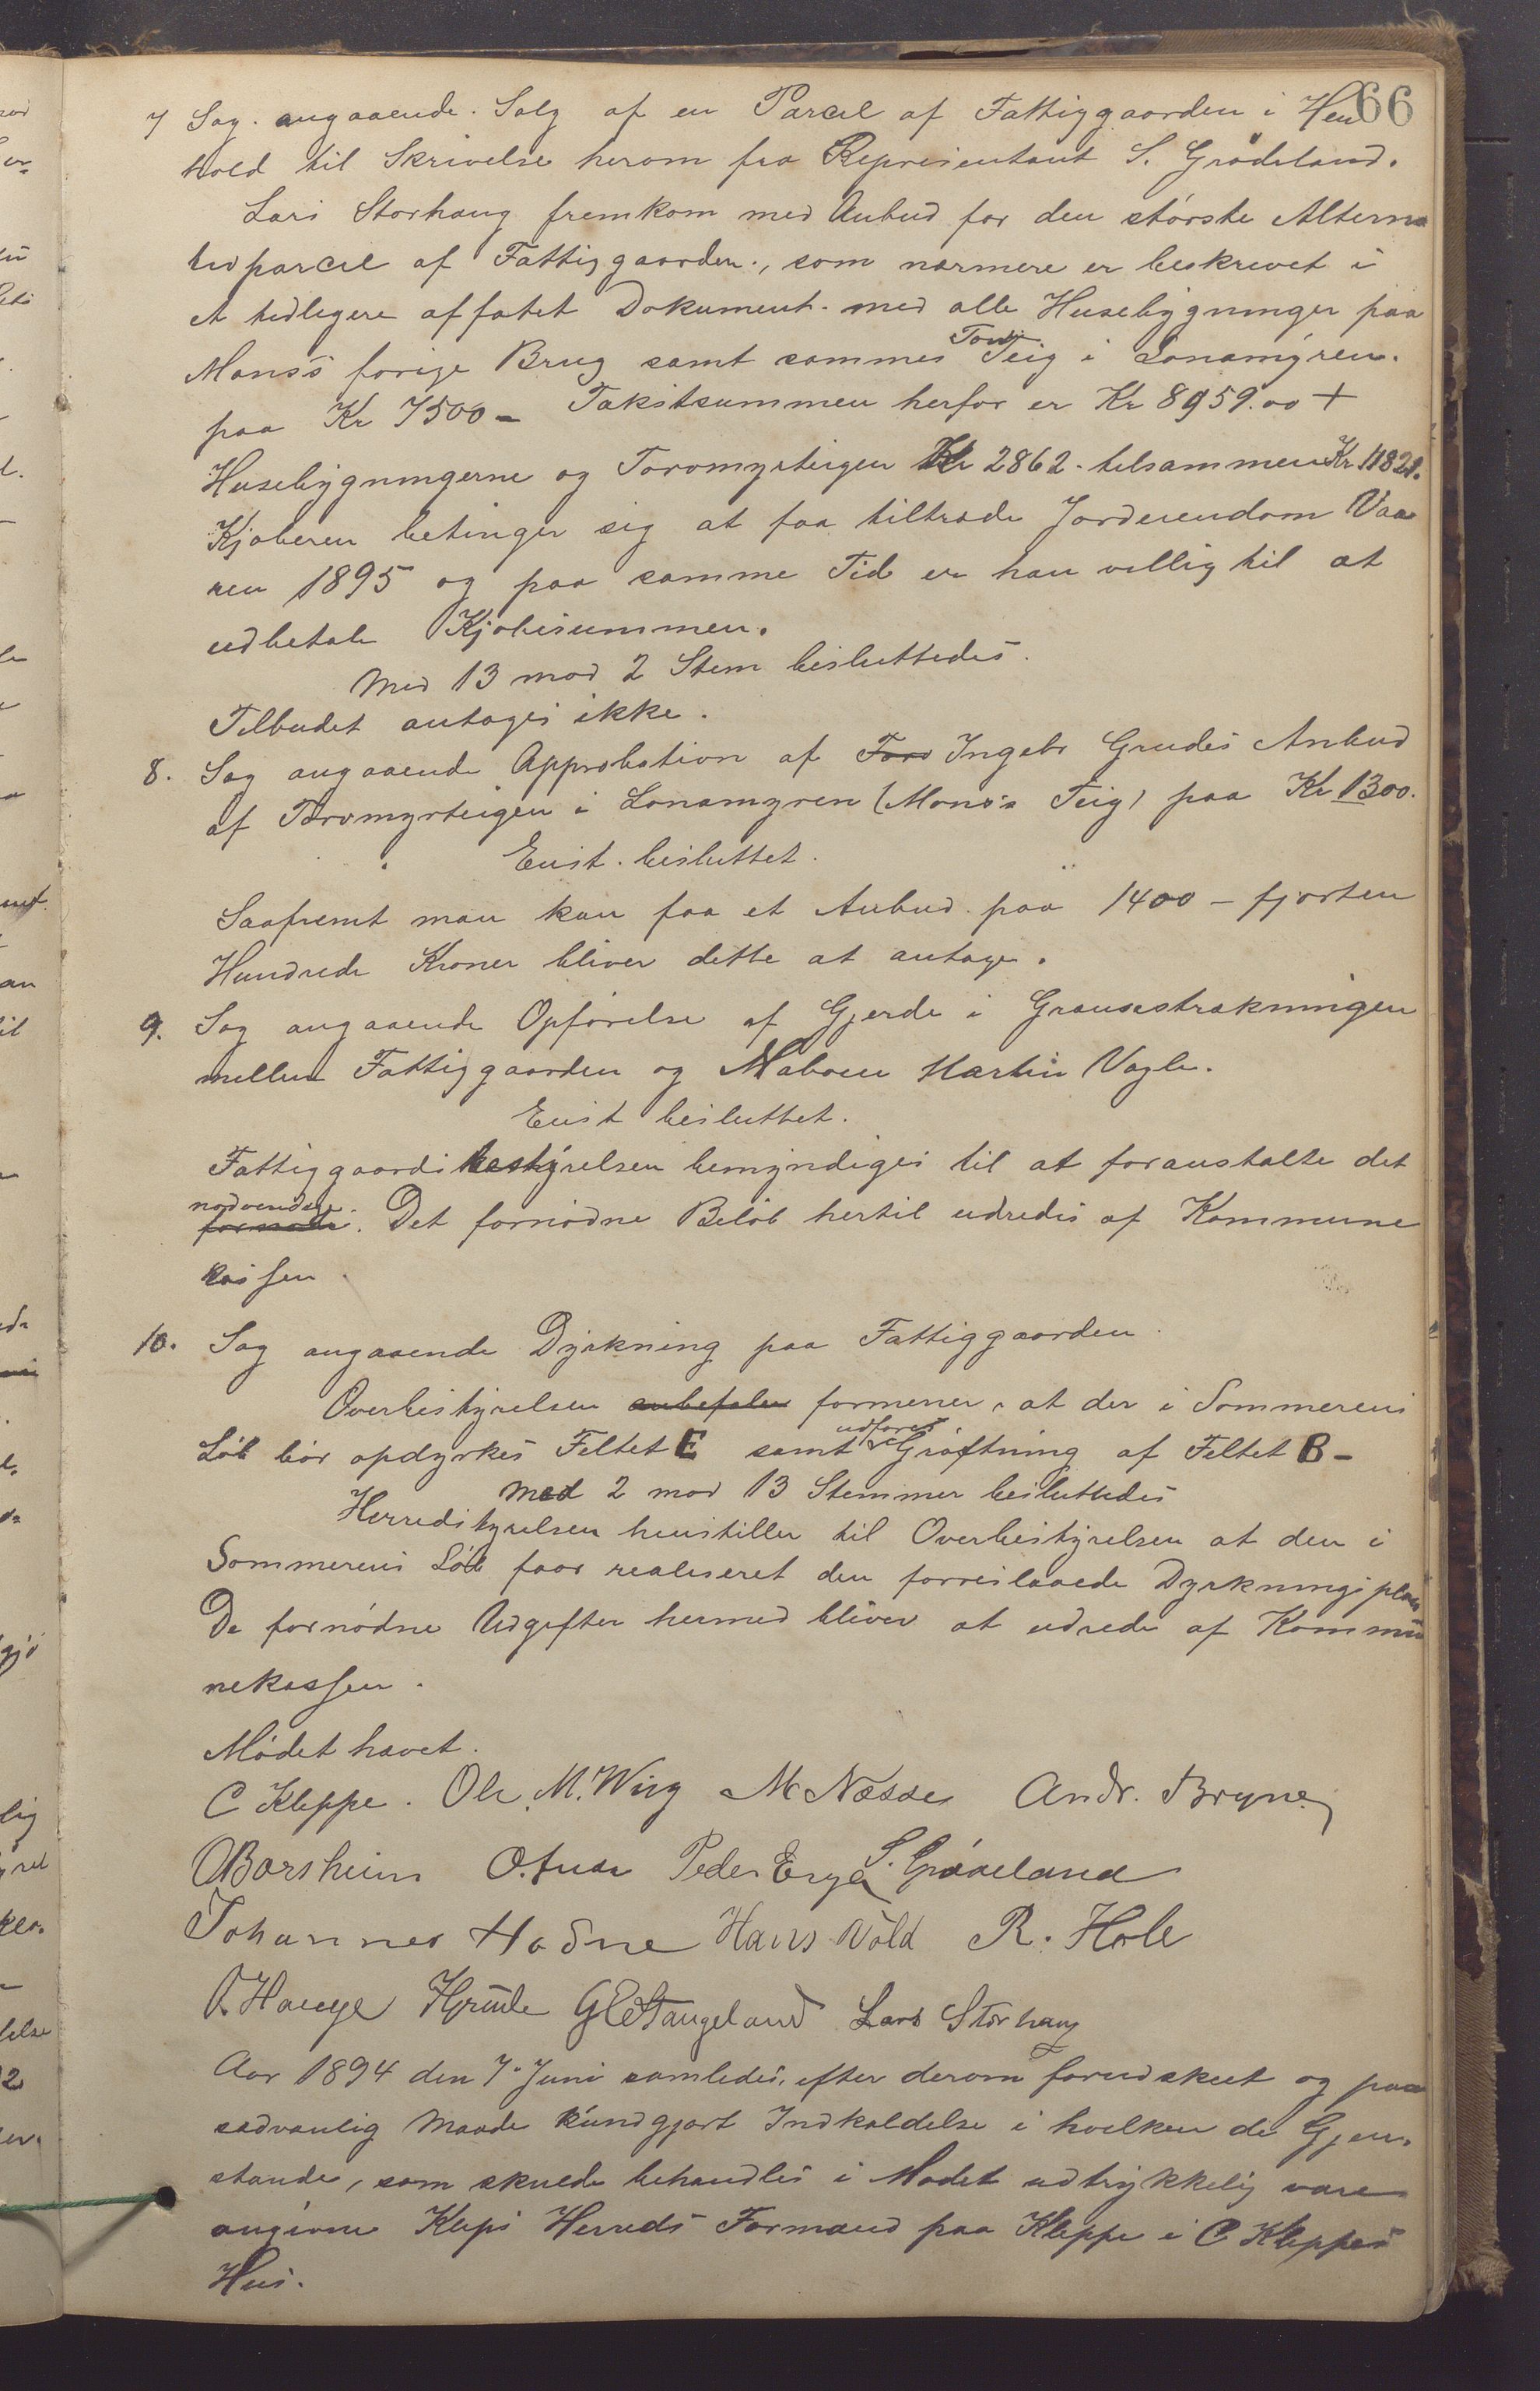 66
7 Sag. angaaende. Salg af en Parcel af Fattiggaarden i Hen
hold til Skrivelse herom fra Representant S. Grødeland.
Lars Storhaug fremkom med Anbud for den største Alterna
tivparcel af Fattiggaarden., som nærmere er beskrevet i
et tidligere affatet Dokument. med alle Husebygninger paa
Mons's forige Brug samt sammes Torv Teig i Lonamyren.
paa Kr 7500 - Takstsummen herfor er Kr 8959.00 +
Husebygningerne og Torvmyrteigen Kr 2862. tilsammen Kr. 11821.
Kjøberen betinger sig at faa tiltræde Jordeiendom Vaa
ren 1895 og paa samme Tid er han villig til at
udbetale Kjøbesummen.
Med 13 mod 2 Stem besluttedes.
Tilbudet antages ikke.
8. Sag angaaende Approbation af Torv Ingebr Grudes Anbud
af Torvmyrteigen i Lonamyren (Mons's Teig) paa Kr 1300.
Enst. besluttet.
Saafremt man kan faa et Anbud paa 1400 - fjorten
Hundrede Kroner bliver dette at antage.
9. Sag angaaende Opførelse af Gjerde i Grænsestrækningen
mellem Fattiggaarden og Naboen Martin Vagle.
Enst besluttet.
Fattiggaardsbestyrelsen bemyndiges til at foranstalte det
nødvendige
fornødne. Det fornødne Beløb hertil udredes af Kommune
kassen.
10. Sag angaaende Dyrkning paa Fattiggaarden.
Overbestyrelsen anbefaler formener, at der i Sommerens
Løb bør opdyrkes Feltet E samt udføres Grøftning af Feltet B -
Med 2 mod 13 Stemmer besluttedes
Herredstyrelsen henstiller til Overbestyrelsen at den i
Sommerens Løb faar realiseret den forreslaaede Dyrkningsplan
De fornødne Udgifter hermed bliver at udrede af Kommu
nekassen.
Mødet hævet.
C Kleppe. Ole M. Wiig M Næsse Andr. Bryne
O Borsheim O. Tuse Peder Erga S. Grødeland
Johannes Hodne Hans Vold R. Hole
O. Hauge H Grude G E Stangeland Lars Storhaug
Aar 1894 den 7. Juni samledes, efter derom forudskeet og paa
sædvanlig Maade kundgjort Indkaldelse i hvilken de Gjen-
stande, som skulde behandles i Mødet udtrykkelig vare
angivne Kleps Herreds Formænd paa Kleppe i C Kleppes
Hus.